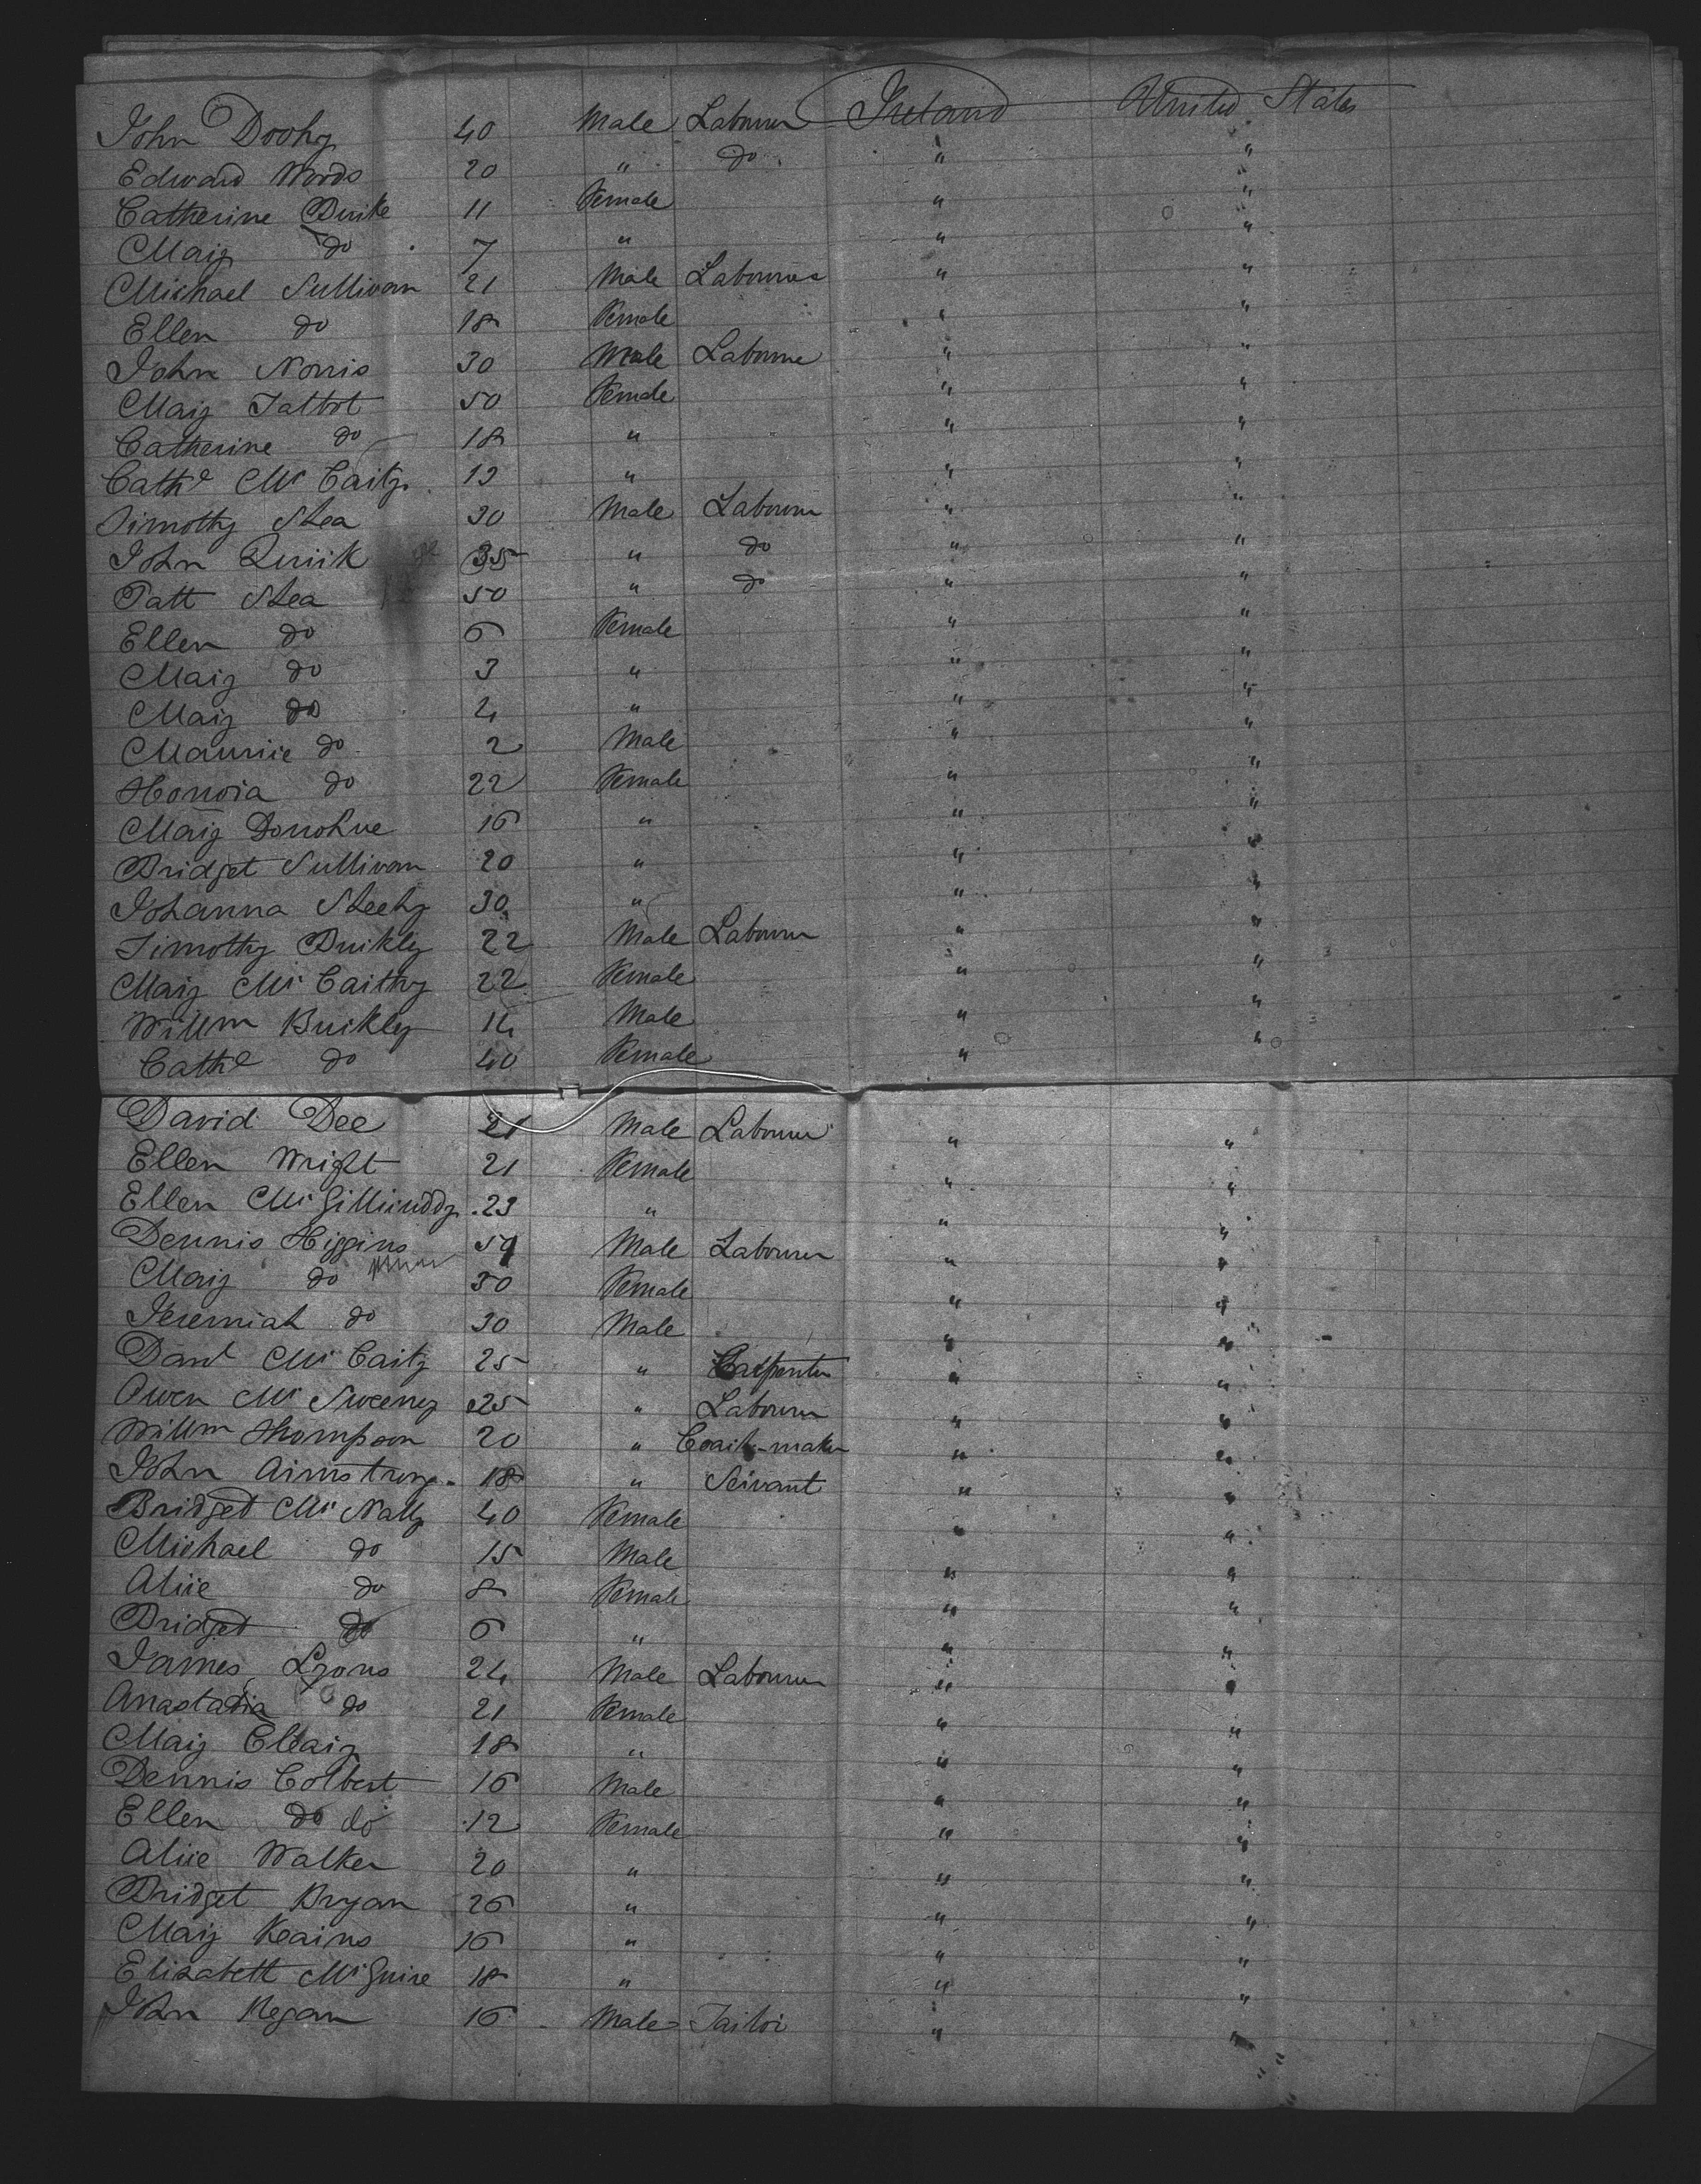 John Doohy 40 Male Labourer Ireland United States
Edward Woods 20 " do " "
Catherine Burke 11 Female " "
Mary do 7 " " "
Michael Sullivan 21 Male Labourer " "
Ellen do 18 Female " "
John Norris 30 Male Labourer " "
Mary Talbot 50 Female " "
Catherine do 18 " " "
Cathe Mc Carty 13 " " "
Timothy Shea 30 Male Labourer " "
John Quirk 35 " do " "
Patt Shea 50 " do " "
Ellen do 6 Female " "
Mary do 3 " " "
Mary do 4 " " "
Maurice do 2 Male " "
Honora do 22 Female " "
Mary Donohue 16 " " "
Bridget Sullivan 20 " " "
Johanna Sheehy 30 " " "
Timothy Buckley 22 Male Labourer " "
Mary Mc Carthy 22 Female " "
Willm Buckley 14 Male " "
Cathe do 40 Female " "
David Dee 21 Male Labourer " "
Ellen Wright 21 Female " "
Ellen Mc Gillicuddy 23 " " "
Dennis Higgins 59 Male Labourer " "
Mary do 50 Female " "
Jeremiah do 30 Male " "
Danl Mc Carty 25 " Carpenter " "
Owen Mc Sweeney 25 " Labourer " "
Willm Thompson 20 " Coach-maker " "
John Armstrong 18 " Servant " "
Bridget Mc Nally 40 Female " "
Michael do 15 Male " "
Alice do 8 Female " "
Bridget do 6 " " "
James Lyons 24 Male Labourer " "
Anastatia do 21 Female " "
Mary Cleary 18 " " "
Dennis Colbert 16 Male " "
Ellen do do 12 Female " "
Alice Walker 20 " " "
Bridget Bryan 26 " " "
Mary Kearns 16 " " "
Elizabeth Mc Guire 18 " " "
John Regan 16 Male Tailor " "